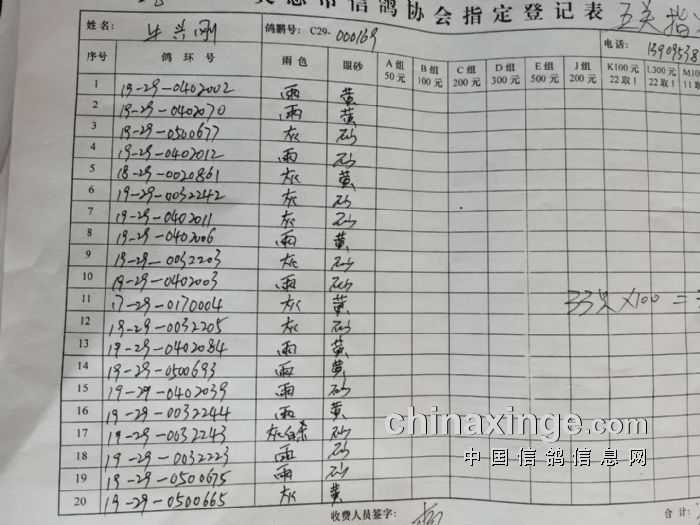 信鸽协会指定登记表 五关指
姓名: 牛兴刚 鸽棚号: C29-000169 电话: 13909538
序号 鸽环号 雨色 眼砂 A组 50元 B组 100元 C组 200元 D组 300元 E组 500元 J组 200元 K100元 22取1 L300元 22取1 M10 11取
1 19-29-0402002 雨 黄
2 19-29-0402070 雨 黄
3 19-29-0500677 灰 砂
4 19-29-0402012 雨 砂
5 18-29-0020861 灰 黄
6 19-29-0032242 灰 砂
7 19-29-0402011 灰 砂
8 19-29-0402006 雨 黄
9 19-29-0032203 灰 砂
10 19-29-0402003 雨 砂
11 17-29-0170004 灰 黄 33只×100=
12 19-29-0032205 灰 砂
13 19-29-0402084 雨 黄
14 19-29-0500693 雨 黄
15 19-29-0402039 雨 砂
16 19-29-0032244 雨 黄
17 19-29-0032243 灰白条 砂
18 19-29-0032223 雨 砂
19 19-29-0500675 雨 砂
20 19-29-0500665 灰 黄
收费人员签字: 合计:
chinaxinge.com
中国信鸽信息网